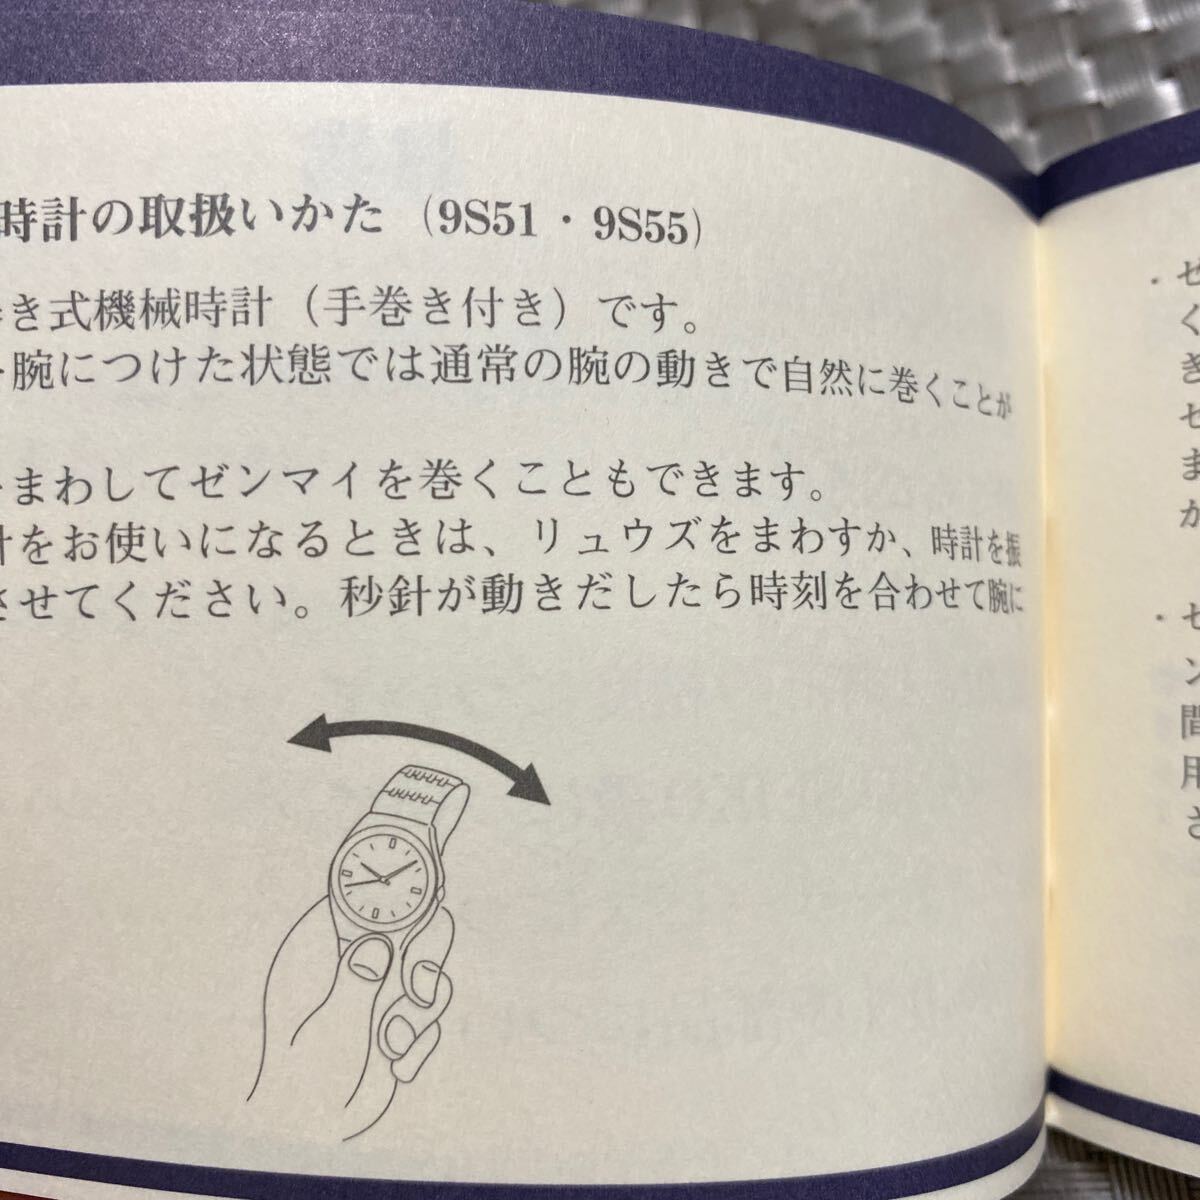 時計の取扱いかた（9S51・9S55）
き式機械時計（手巻き付き）です。
腕につけた状態では通常の腕の動きで自然に巻くことが
まわしてゼンマイを巻くこともできます。
計をお使いになるときは、リュウズをまわすか、時計を振
させてください。秒針が動きだしたら時刻を合わせて腕に
・ゼ
く
ぎ
セ
ま
か
・セ
ン
間
用
さ